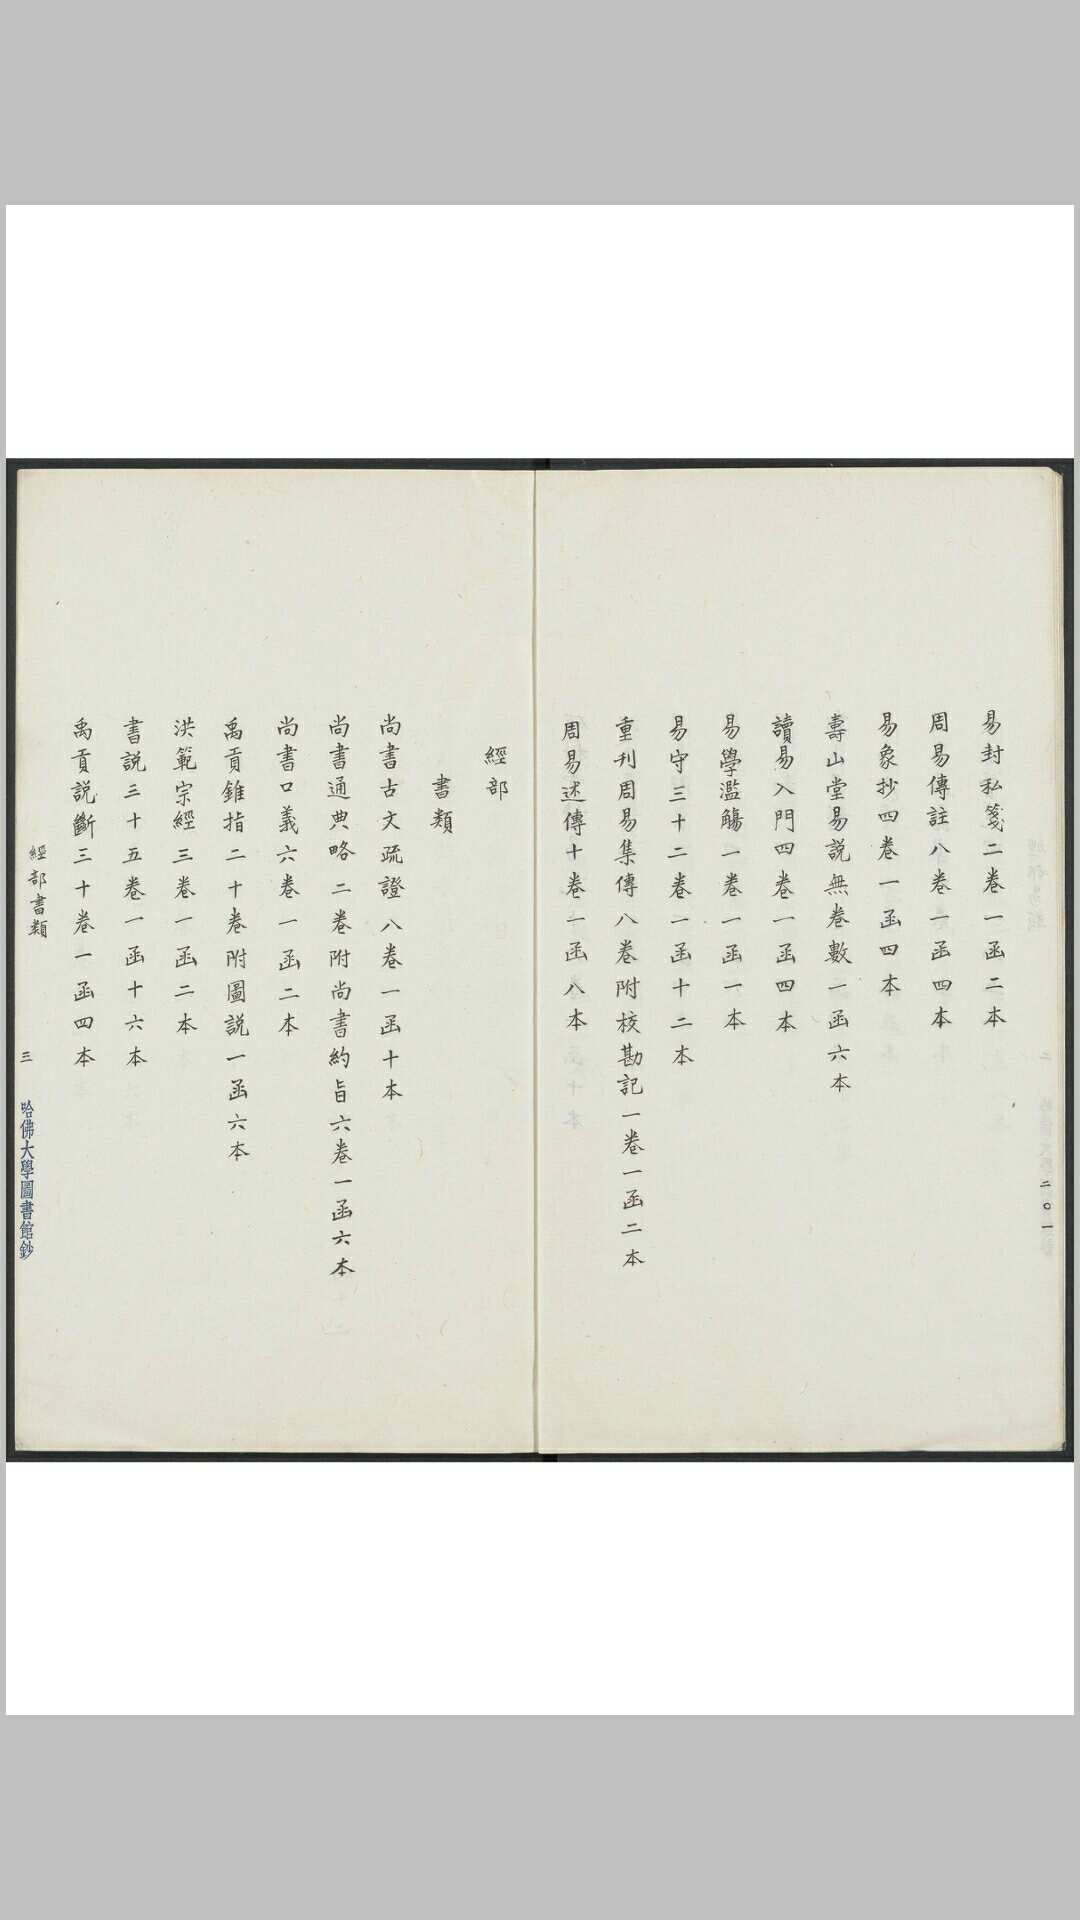 易封私箋二卷一函二本
周易傳註八卷一函四本
易象抄四卷一函四本
壽山堂易說無卷數一函六本
讀易入門四卷一函四本
易學濫觴一卷一函一本
易守三十二卷一函十二本
重刊周易集傳八卷附校勘記一卷一函二本
周易述傳十卷一函八本
二〇一
經部
書類
尚書古文疏證八卷一函十本
尚書通典略二卷附尚書約旨六卷一函六本
尚書口義六卷一函二本
禹貢錐指二十卷附圖說一函六本
洪範宗經三卷一函二本
書說三十五卷一函十六本
禹貢說斷三十卷一函四本
經部書類 三
哈佛大學圖書館鈔